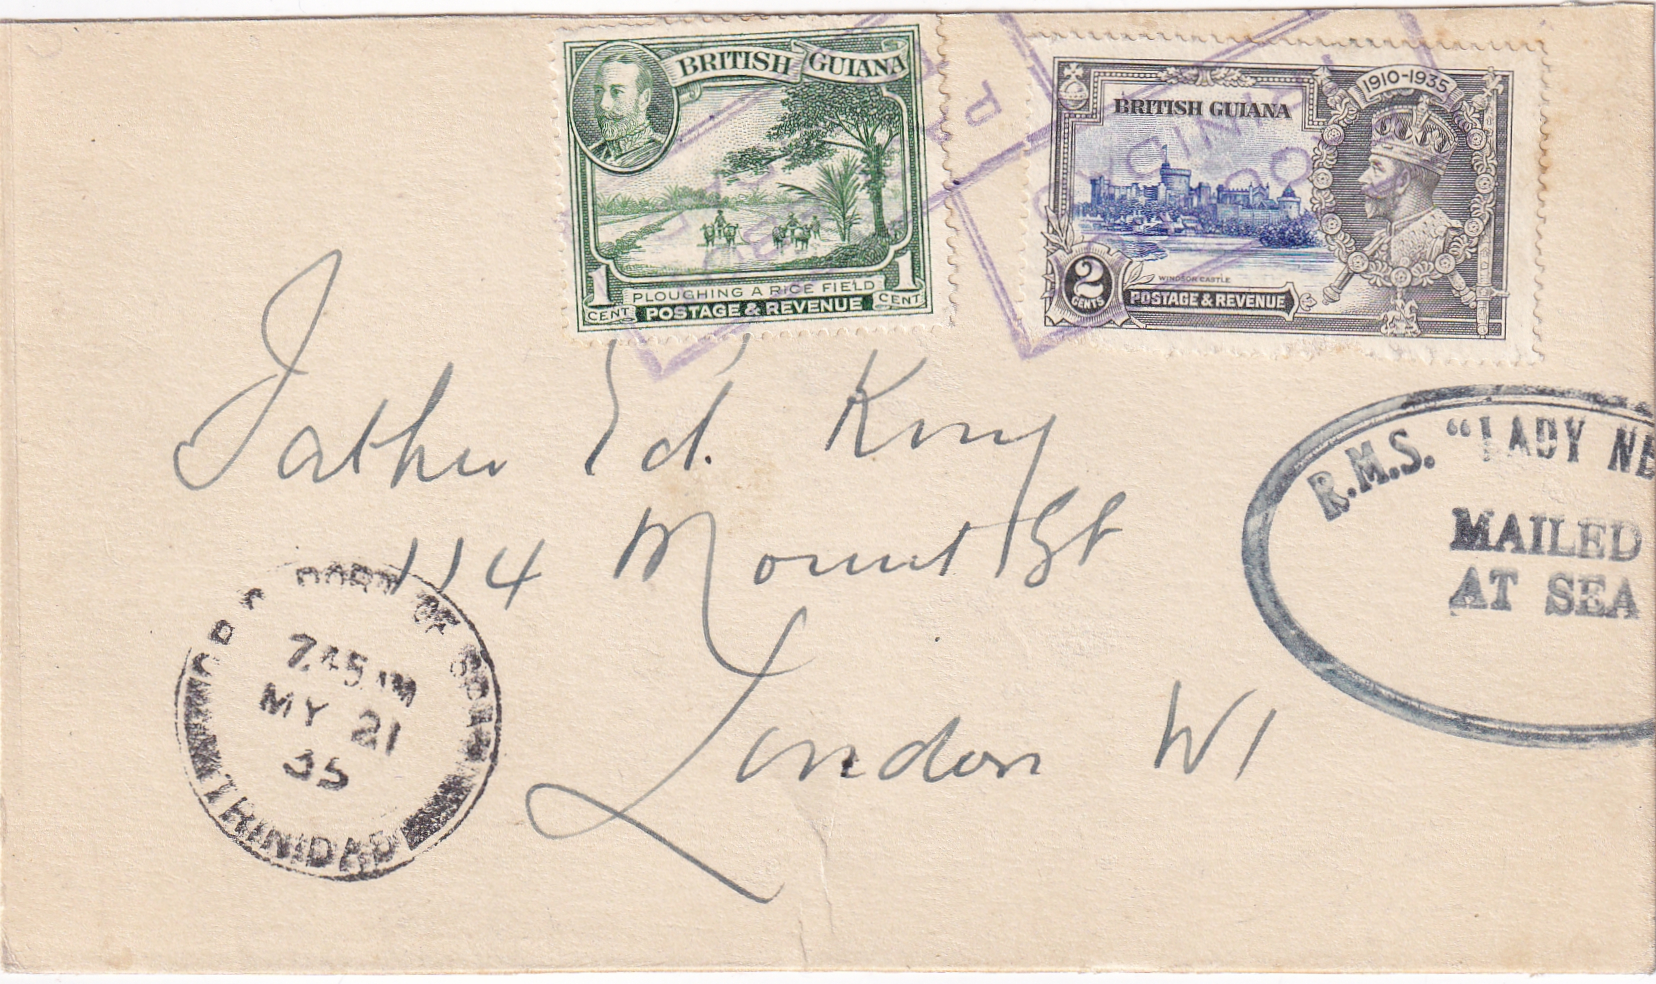 BRITISH GUIANA
1 CENT
PLOUGHING A RICE FIELD
1 CENT
POSTAGE & REVENUE
1910-1935
BRITISH GUIANA
WINDSOR CASTLE
2 CENTS
POSTAGE & REVENUE
Father Ed. King
114 Mount St
London W1
R.M.S. "LADY NE
MAILED
AT SEA
PORT OF SPAIN
7.45 AM
MY 21
35
TRINIDAD